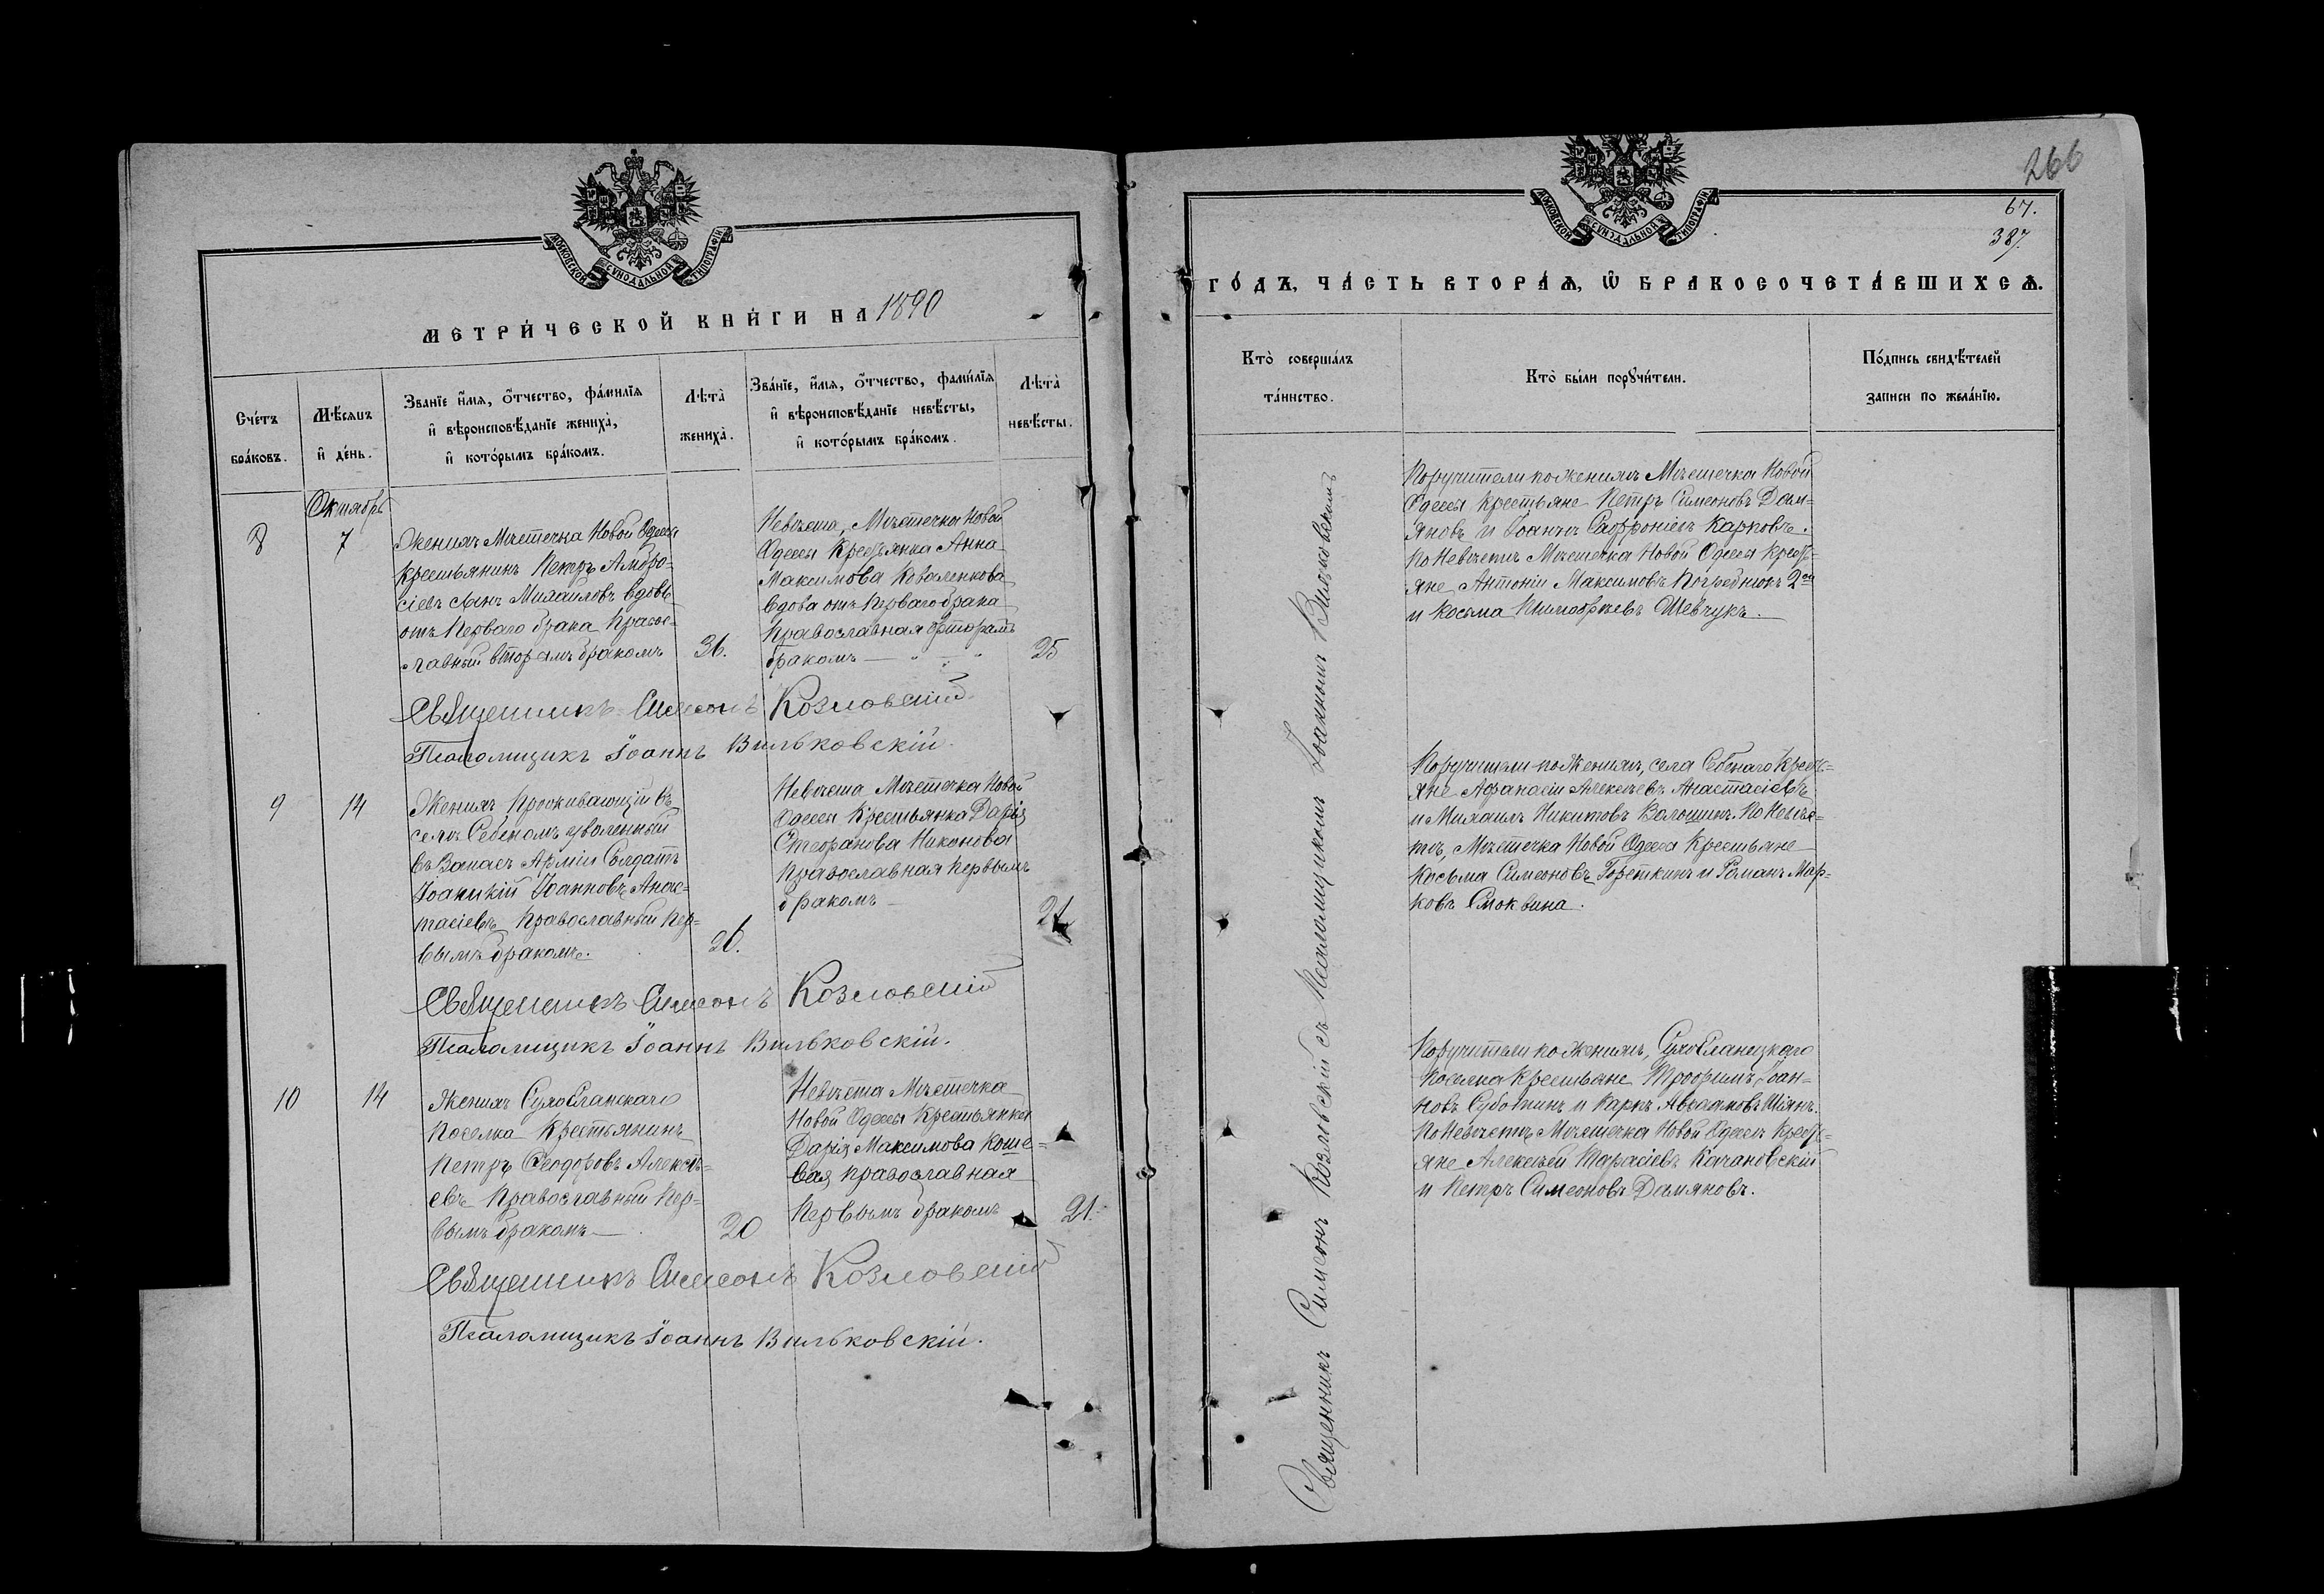 МОСКОВСКОЙ СѴНОДАЛЬНОЙ ТИПОГРАФІИ
МЕТРИ́ЧЕСКОЙ КНИ́ГИ НА 1890
Сче́тъ
бра́ковъ.
Мѣ́сяцъ
и҆ де́нь.
Зва́нїе и҆́мя, ѻ҆́тчество, фамѝлїя
и҆ вѣроисповѣ́данїе жениха̀,
и҆ кото́рымъ бра́комъ.
Лѣта̀
жениха̀.
Зва́нїе, и҆́мя, ѻ҆́тчество, фами́лїя
и҆ вѣроисповѣ́данїе невѣ́сты,
и҆ кото́рымъ бра́комъ.
Лѣта̀
невѣ́сты.
Октябрь
8
7
Женихъ Мѣстечка Новой Одессы
крестьянинъ Петръ Амвро-
сіевъ сынъ Михаиловъ вдовъ
отъ перваго брака Правос-
лавный вторымъ бракомъ
36.
Невѣста, Мѣстечка Новой
Одессы Крестьянка Анна
Максимова Коваленкова
вдова отъ перваго брака
Православная вторымъ
бракомъ
25
Священникъ Симеонъ Козловскій
Псаломщикъ Іоаннъ Вильковскій.
9
14
Женихъ проживающій въ
селѣ Себеномъ уволенный
въ Запасъ Арміи Солдатъ
Іоаникій Іоанновъ Анас-
тасіевъ Православный пер-
вымъ бракомъ.
26.
Невѣста Мѣстечка Новой
Одессы Крестьянка Дарія
Стефанова Никонова
Православная первымъ
бракомъ
Священникъ Симеонъ Козловскій
Псаломщикъ Іоаннъ Вильковскій.
10
14
Женихъ СухоЕланскаго
поселка Крестьянинъ
Петръ Ѳеодоровъ Алексѣ-
евъ Православный пер-
вымъ бракомъ
20
Невѣста Мѣстечка
Новой Одессы Крестьянка
Дарія Максимова Коше-
вая православная
первымъ бракомъ
21.
Священникъ Симеонъ Козловскій
Псаломщикъ Іоаннъ Вильковскій.
266
67.
387.
МОСКОВСКОЙ СѴНОДАЛЬНОЙ ТИПОГРАФІИ
ГО́ДЪ, ЧА́СТЬ ВТОРА́Ѧ, Ѡ҆ БРАКОСОЧЕТА́ВШИХСѦ.
Кто̀ соверша́лъ
та́инство.
Кто̀ бы́ли порꙋчи́тели.
По́дпись свидѣ́телей
записи по жела́нїю.
Священникъ Симеонъ Козловскій съ Псаломщикомъ Іоанномъ Вильковскимъ
Поручители по Женихѣ Мѣстечка Новой
Одессы крестьяне Петръ Симеоновъ Дам-
яновъ и Іоаннъ Софроніевъ Карповъ.
По Невѣстѣ Мѣстечка Новой Одессы крестъ-
яне Антоній Максимовъ 2ой
и Косьма Тимофѣевъ Шевчукъ.
Поручители по Женихѣ, села Себенаго Крестъ-
яне Афанасій Алексѣевъ Анастасіевъ
и Михаилъ Никитовъ Волошинъ. По Невѣс-
тѣ, Мѣстечка Новой Одессы Крестьяне
Косьма Симеоновъ Горѣткинъ и Романъ Мар-
ковъ Смоквина.
Поручители по Женихѣ, СухоЕланецкаго
поселка крестьяне Трофимъ Іоан-
новъ Суботинъ и Маркъ Авраамовъ Шіянъ.
По Невѣстѣ Мѣстечка Новой Одессы Крестъ-
яне Алексѣй Тарасіевъ Качановскій
и Петръ Симеоновъ Дамяновъ.